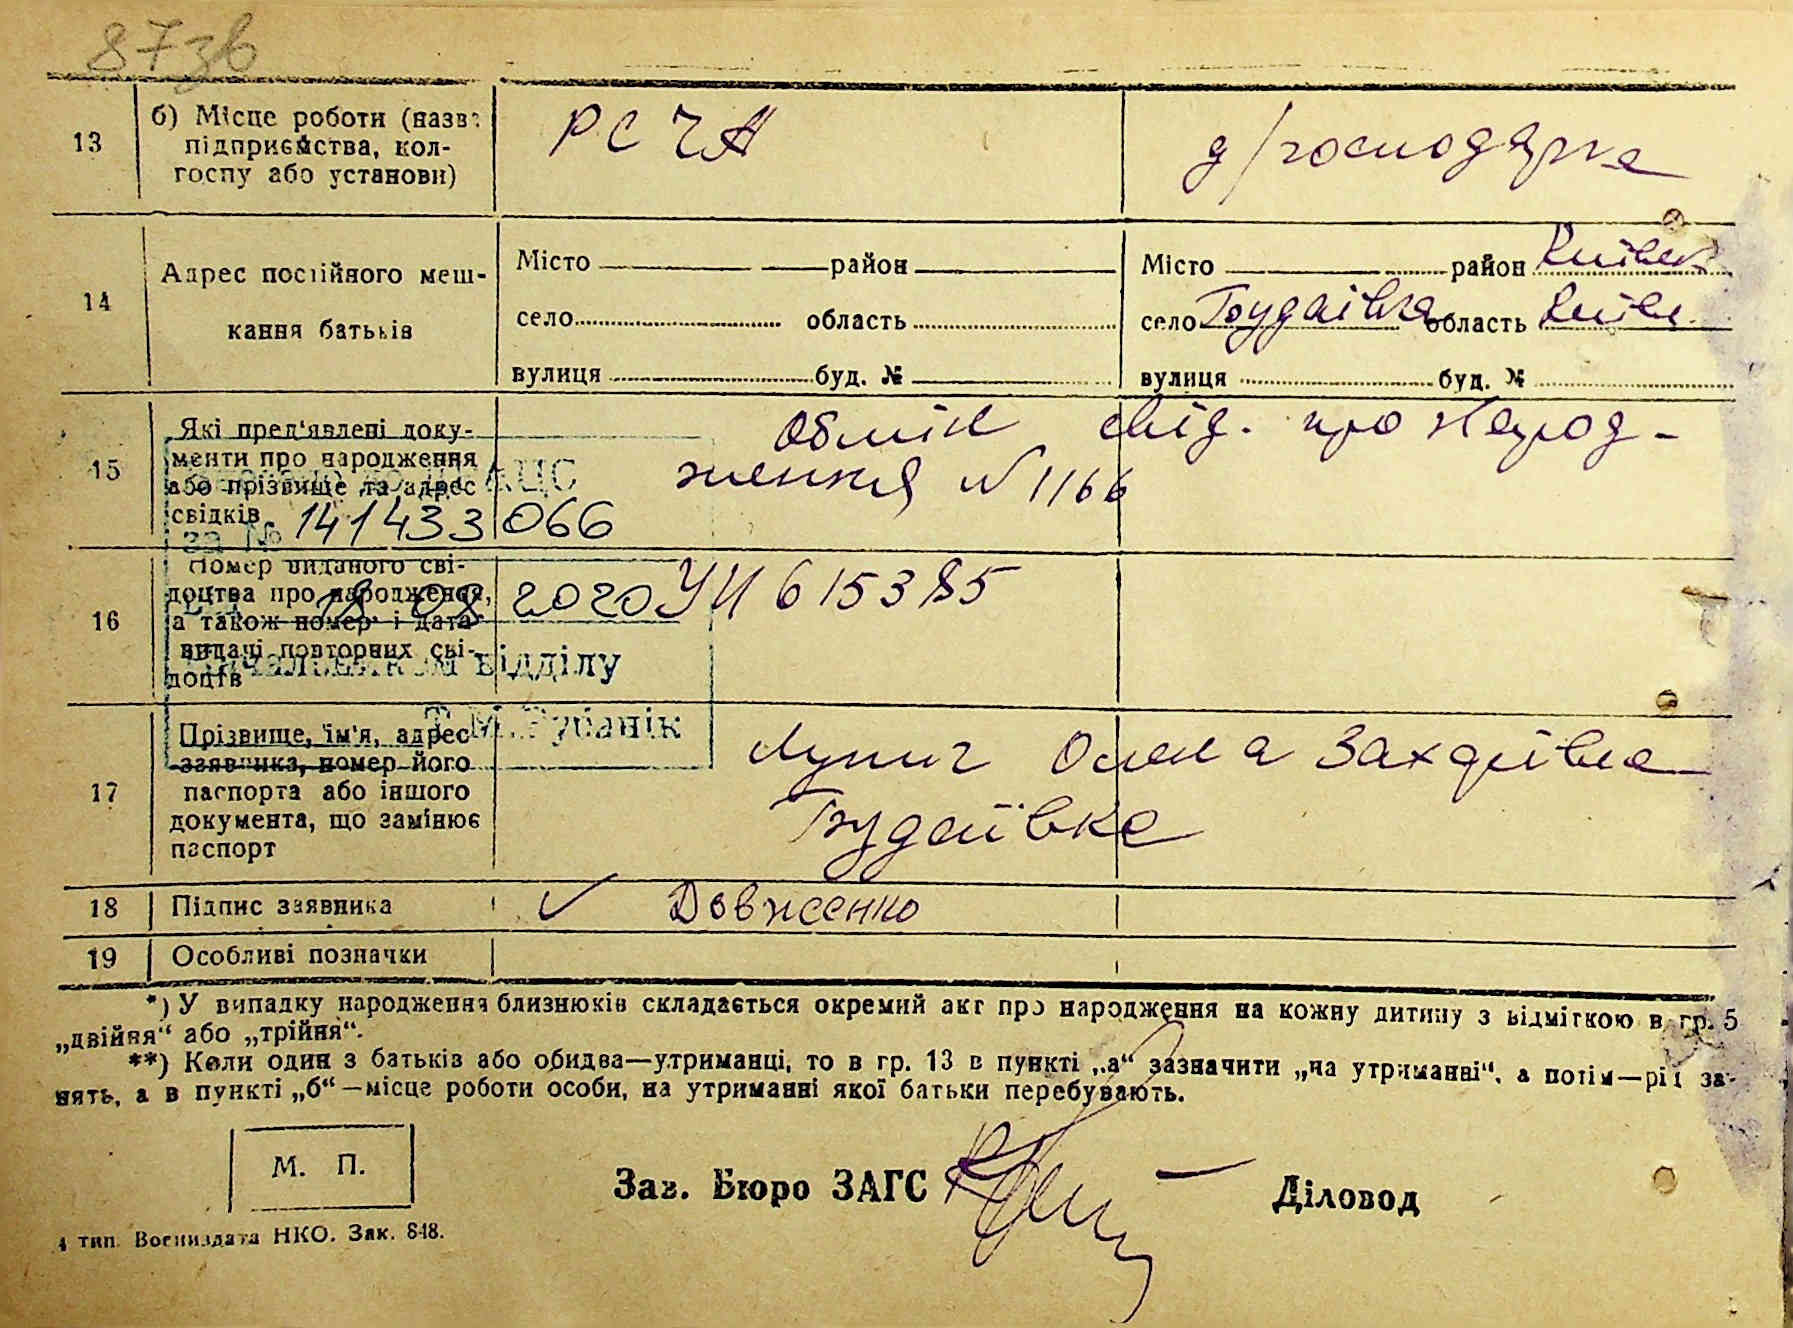 87зв
13
б) Місце роботи (назва
підприємства, кол-
госпу або установи)
РСЧА
д/господарка
14
Адрес постійного меш-
кання батьків
Місто район
село область
вулиця буд. №
Місто район Київськ
село Будаївка область Київ
вулиця буд. №
15
Які пред'явлені доку-
менти про народження
або прізвище та адрес
свідків
Обмін свід. про народ-
ження №1166
АЦС
за № 141433066
16
Номер виданого сві-
доцтва про народження,
а також номер і дата
видачі повторних сві-
доцтв
18 08 2020
УИ 615385
Начальником відділу
Т.М. Рубанік
17
Прізвище, ім'я, адрес
заявника, номер його
паспорта або іншого
документа, що замінює
паспорт
Олена Захарівна
Будаївка
18
Підпис заявника
✓ Довженко
19
Особливі позначки
*) У випадку народження близнюків складається окремий акт про народження на кожну дитину з відміткою в гр. 5
„двійня“ або „трійня“.
**) Коли один з батьків або обидва—утриманці, то в гр. 13 в пункті „а“ зазначити „на утриманні“, а потім—рід за-
нять, а в пункті „б“—місце роботи особи, на утриманні якої батьки перебувають.
М. П.
Зав. Бюро ЗАГС
Діловод
4 тип. Воениздата НКО. Зак. 848.